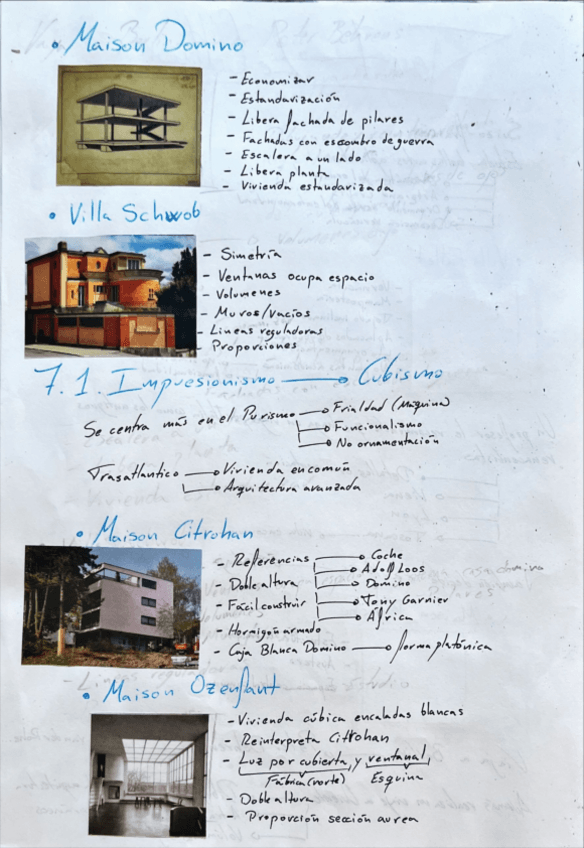 • Maison Domino
- Economizar
- Estandarización
- Libera fachada de pilares
- Fachadas con escombro de guerra
- Escalera a un lado
- Libera planta
- Vivienda estandarizada
• Villa Schwob
- Simetría
- Ventanas ocupa espacio
- Volumenes
- Muros/Vacíos
- Lineas reguladoras
- Proporciones
7.1. Impresionismo → Cubismo
Se centra más en el Purismo → Frialdad (Máquina)
→ Funcionalismo
→ No ornamentación
Trasatlantico → Vivienda en común
→ Arquitectura avanzada
• Maison Citrohan
- Referencias → Coche
→ Adolf Loos
→ Domino
→ Tony Garnier
→ África
- Doble altura
- Fácil construir
- Hormigón armado
- Caja Blanca Domino → forma platónica
• Maison Ozenfant
- Vivienda cúbica encaladas blancas
- Reinterpreta Citrohan
- Luz por cubierta, y ventanal,
Fábrica (norte) Esquina
- Doble altura
- Proporción sección aurea